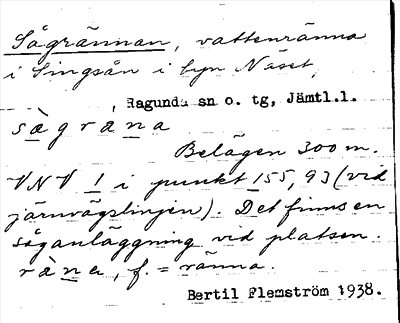 Sågrännan, vattenränna
i Singsån i byn Näset,
Ragunda sn o. tg, Jämtl.l.
sàgràna
Belägen 300 m.
VNV 1 i punkt 155,93 (vid
järnvägslinjen). Det finns en
såganläggning vid platsen.
ràna, f. = ränna.
Bertil Flemström 1938.